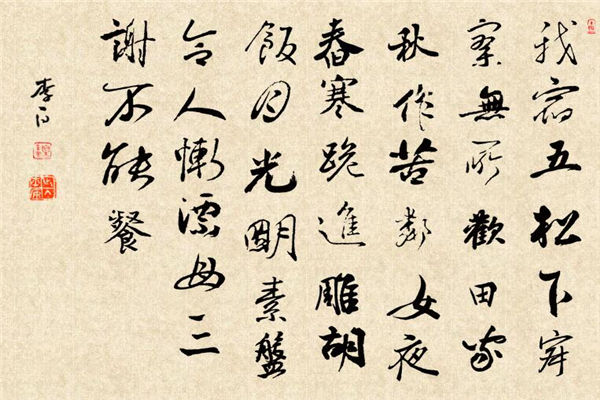 我宿五松下寂
寥無所歡田家
秋作苦鄰女夜
舂寒跪進雕胡
飯月光明素盤
令人慚漂母三
謝不能餐
李白